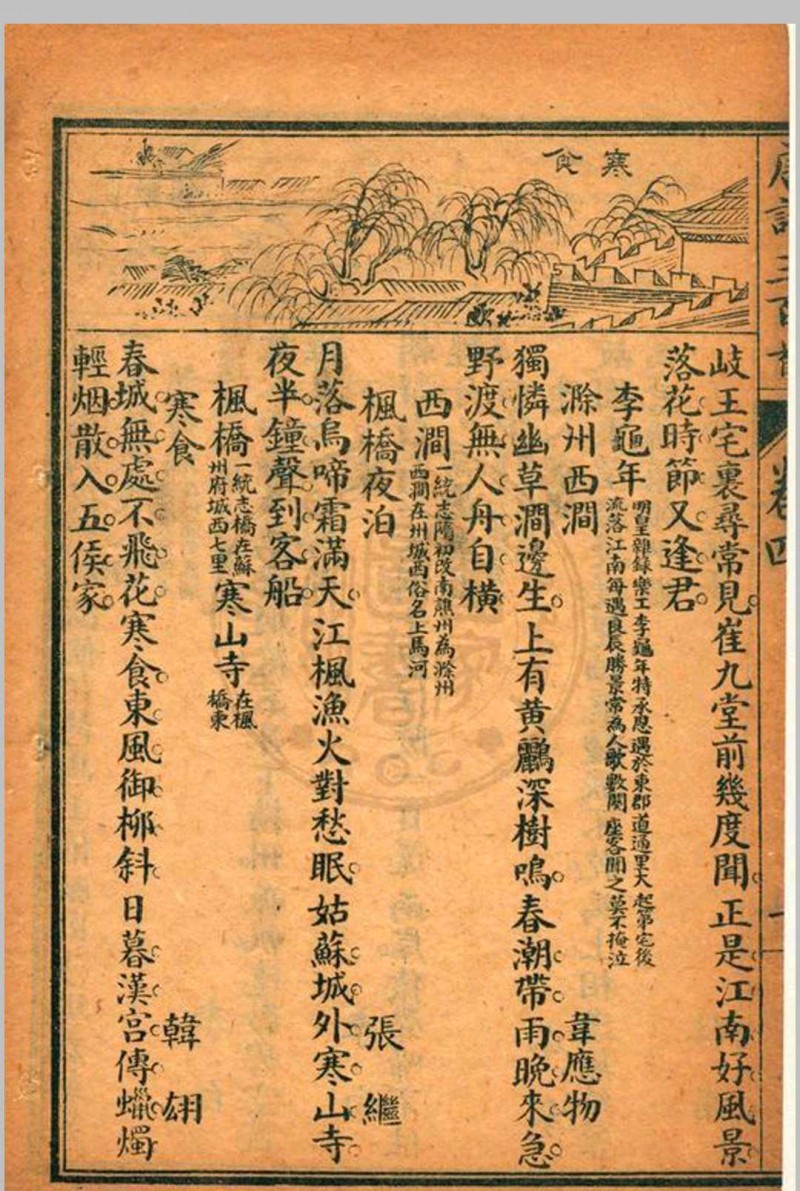 唐詩三百首
卷四
寒食
岐王宅裏尋常見崔九堂前幾度聞正是江南好風景
落花時節又逢君
李龜年
明皇雜錄樂工李龜年特承恩遇於東都道通里大起第宅後
流落江南每遇良辰勝景常為人歌數闋座客聞之莫不掩泣
滁州西澗 韋應物
獨憐幽草澗邊生上有黄鸝深樹鳴春潮帶雨晚來急
野渡無人舟自橫
西澗
一統志隋初改南譙州為滁州
西澗在州城西俗名上馬河
楓橋夜泊 張繼
月落烏啼霜滿天江楓漁火對愁眠姑蘇城外寒山寺
夜半鐘聲到客船
楓橋
一統志橋在蘇
州府城西七里
寒山寺
在楓
橋東
寒食 韓翃
春城無處不飛花寒食東風御柳斜日暮漢宮傳蠟燭
輕烟散入五侯家